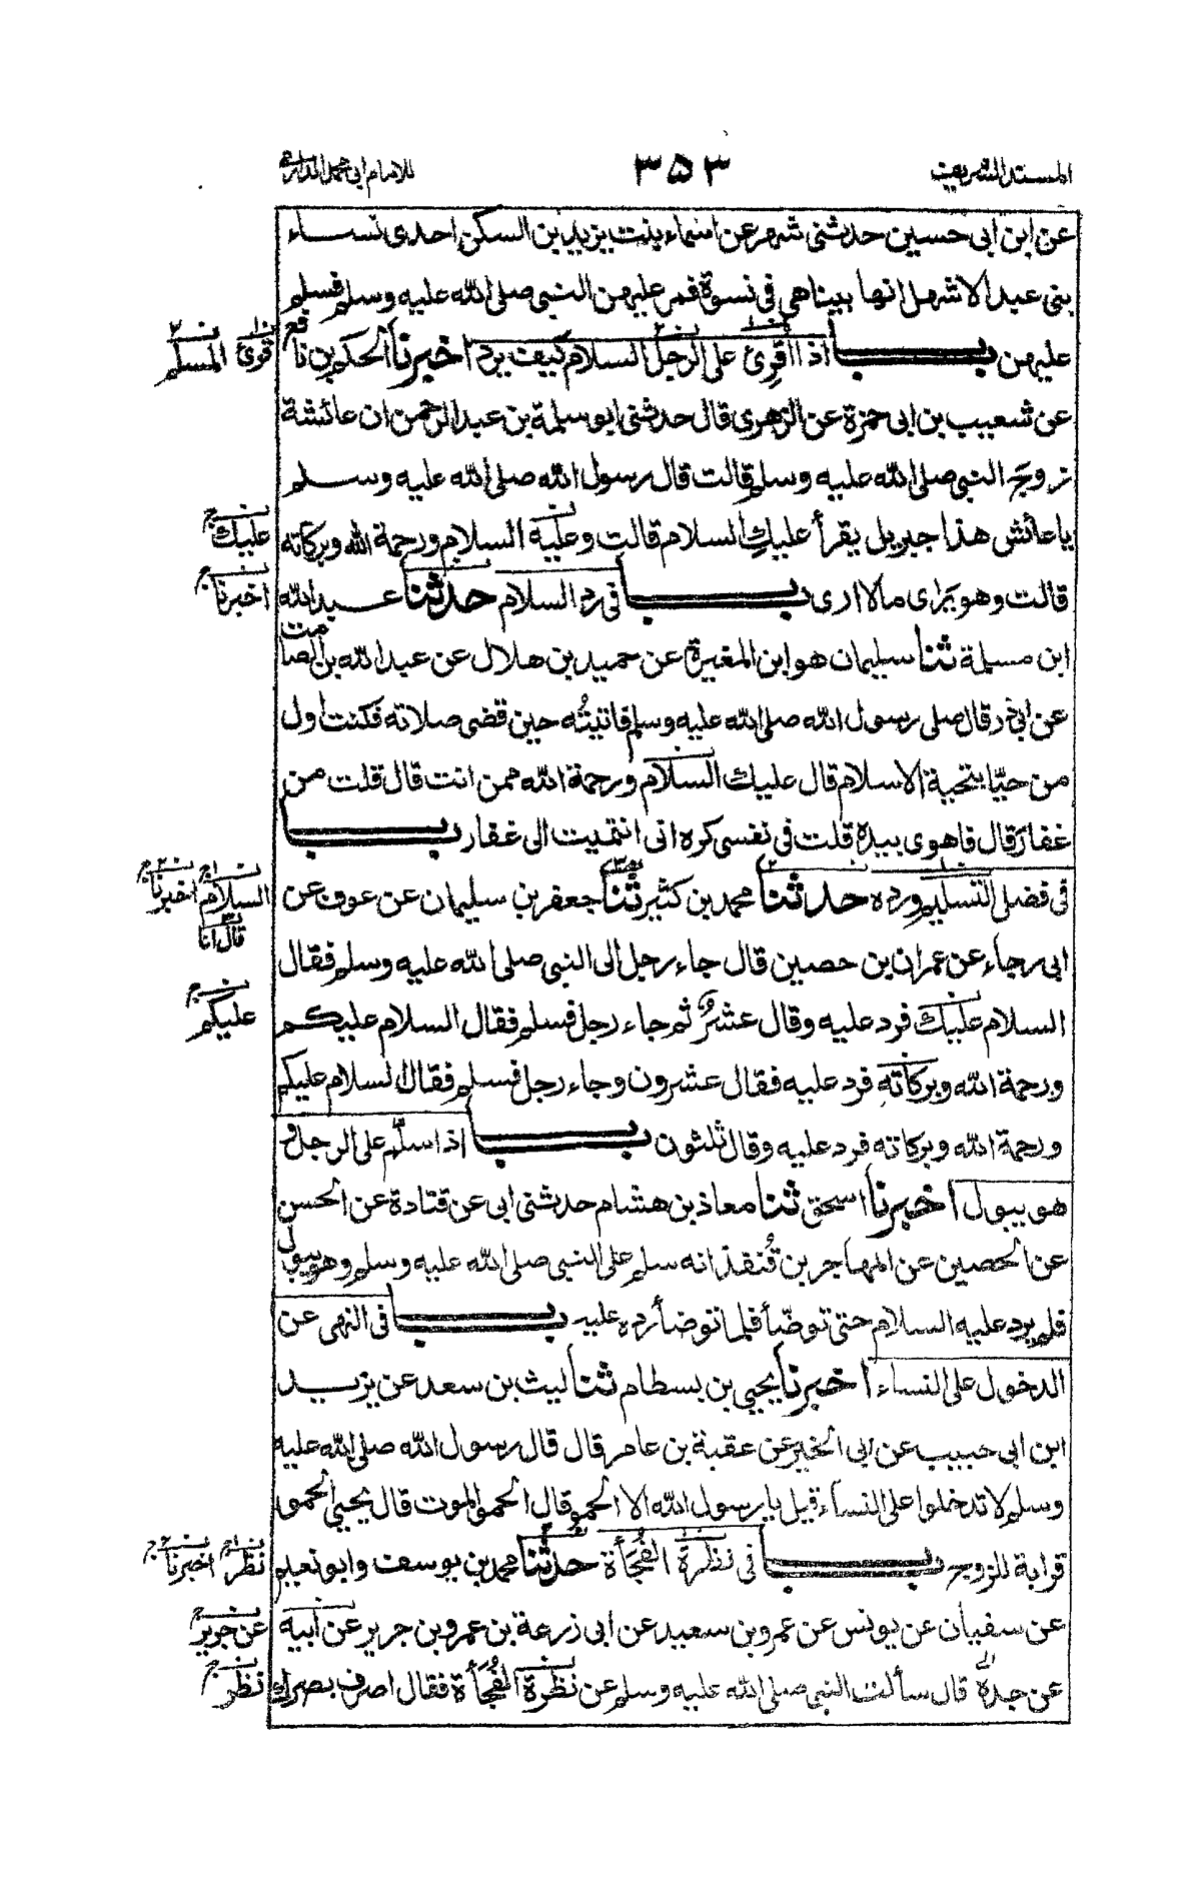 المسند الشريف ٣٥٣ للامام ابى محمد الدارمى
عن ابن ابى حسين حدثنى شهر عن اسماء بنت يزيد بن السكن احدى نساء
بنى عبد الاشهل انها بيناهى فى نسوة فمر عليهن النبى صلى الله عليه وسلم فسلم
عليهن باب اذا اُقرِئ على الرجل السلام كيف يرد اخبرنا الحكم بن نافع
قرئ المسلم
عن شعيب بن ابى حمزة عن الزهرى قال حدثنى ابو سلمة بن عبد الرحمن ان عائشة
زوج النبى صلى الله عليه وسلم قالت قال رسول الله صلى الله عليه وسلم
يا عائش هذا جبريل يقرأ عليكِ السلام قالت وعليه السلام ورحمة الله وبركاته
عليك
قالت وهو يَرى مالا ارى باب فى رد السلام حدثنا عبد الله
اخبرنا
ابن مسلمة ثنا سليمان هو ابن المغيرة عن حميد بن هلال عن عبد الله بن الصامت
عن ابى ذر قال صلى رسول الله صلى الله عليه وسلم فاتيتُه حين قضى صلاته فكنت اول
من حيّا بتحية الاسلام قال عليك السلام ورحمة الله ممن انت قال قلت من
غفار قال فاهوى بيده قلت فى نفسى كره انى انتميت الى غفار باب
فى فضل التسليم ورده حدثنا محمد بن كثير ثنا جعفر بن سليمان عن عوف عن
السلام اخبرنا
قال انا
ابى رجاء عن عمران بن حصين قال جاء رجل الى النبى صلى الله عليه وسلم فقال
السلام عليك فرد عليه وقال عشرٌ ثم جاء رجل فسلم فقال السلام عليكم
عليكم
ورحمة الله وبركاته فرد عليه فقال عشرون وجاء رجل فسلم فقال السلام عليكم
ورحمة الله وبركاته فرد عليه وقال ثلثون باب اذا سلّم على الرجل و
هو يبول اخبرنا اسحق ثنا معاذ بن هشام حدثنى ابى عن قتادة عن الحسن
عن الحصين عن المهاجر بن قُنفذ انه سلم على النبى صلى الله عليه وسلم وهو يبول
فلم يرد عليه السلام حتى توضّأ فلما توضأ رده عليه باب فى النهى عن
الدخول على النساء اخبرنا يحيى بن بسطام ثنا ليث بن سعد عن يزيد
ابن ابى حبيب عن ابى الخير عن عقبة بن عامر قال قال رسول الله صلى الله عليه
وسلم لا تدخلوا على النساء قيل يا رسول الله الا الحمو قال الحمو الموت قال يحيى الحمو
قرابة للزوج باب فى نظرة الفُجَأة حدثنا محمد بن يوسف وابو نعيم
نظر اخبرنا
عن سفيان عن يونس عن عمرو بن سعيد عن ابى زرعة بن عمرو بن جرير عن ابيه
عن جرير
عن جده قال سألت النبى صلى الله عليه وسلم عن نظرة الفُجَأة فقال اصرف بصرك
نظر